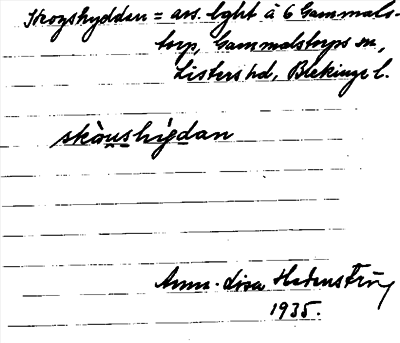 Skogshyddan = ars. lght å 6 Gammals-
torp, Gammalstorps sn,
Listers hd, Blekinge l.
skòu̯shýdan
Anna-Lisa Hedenström
1935.